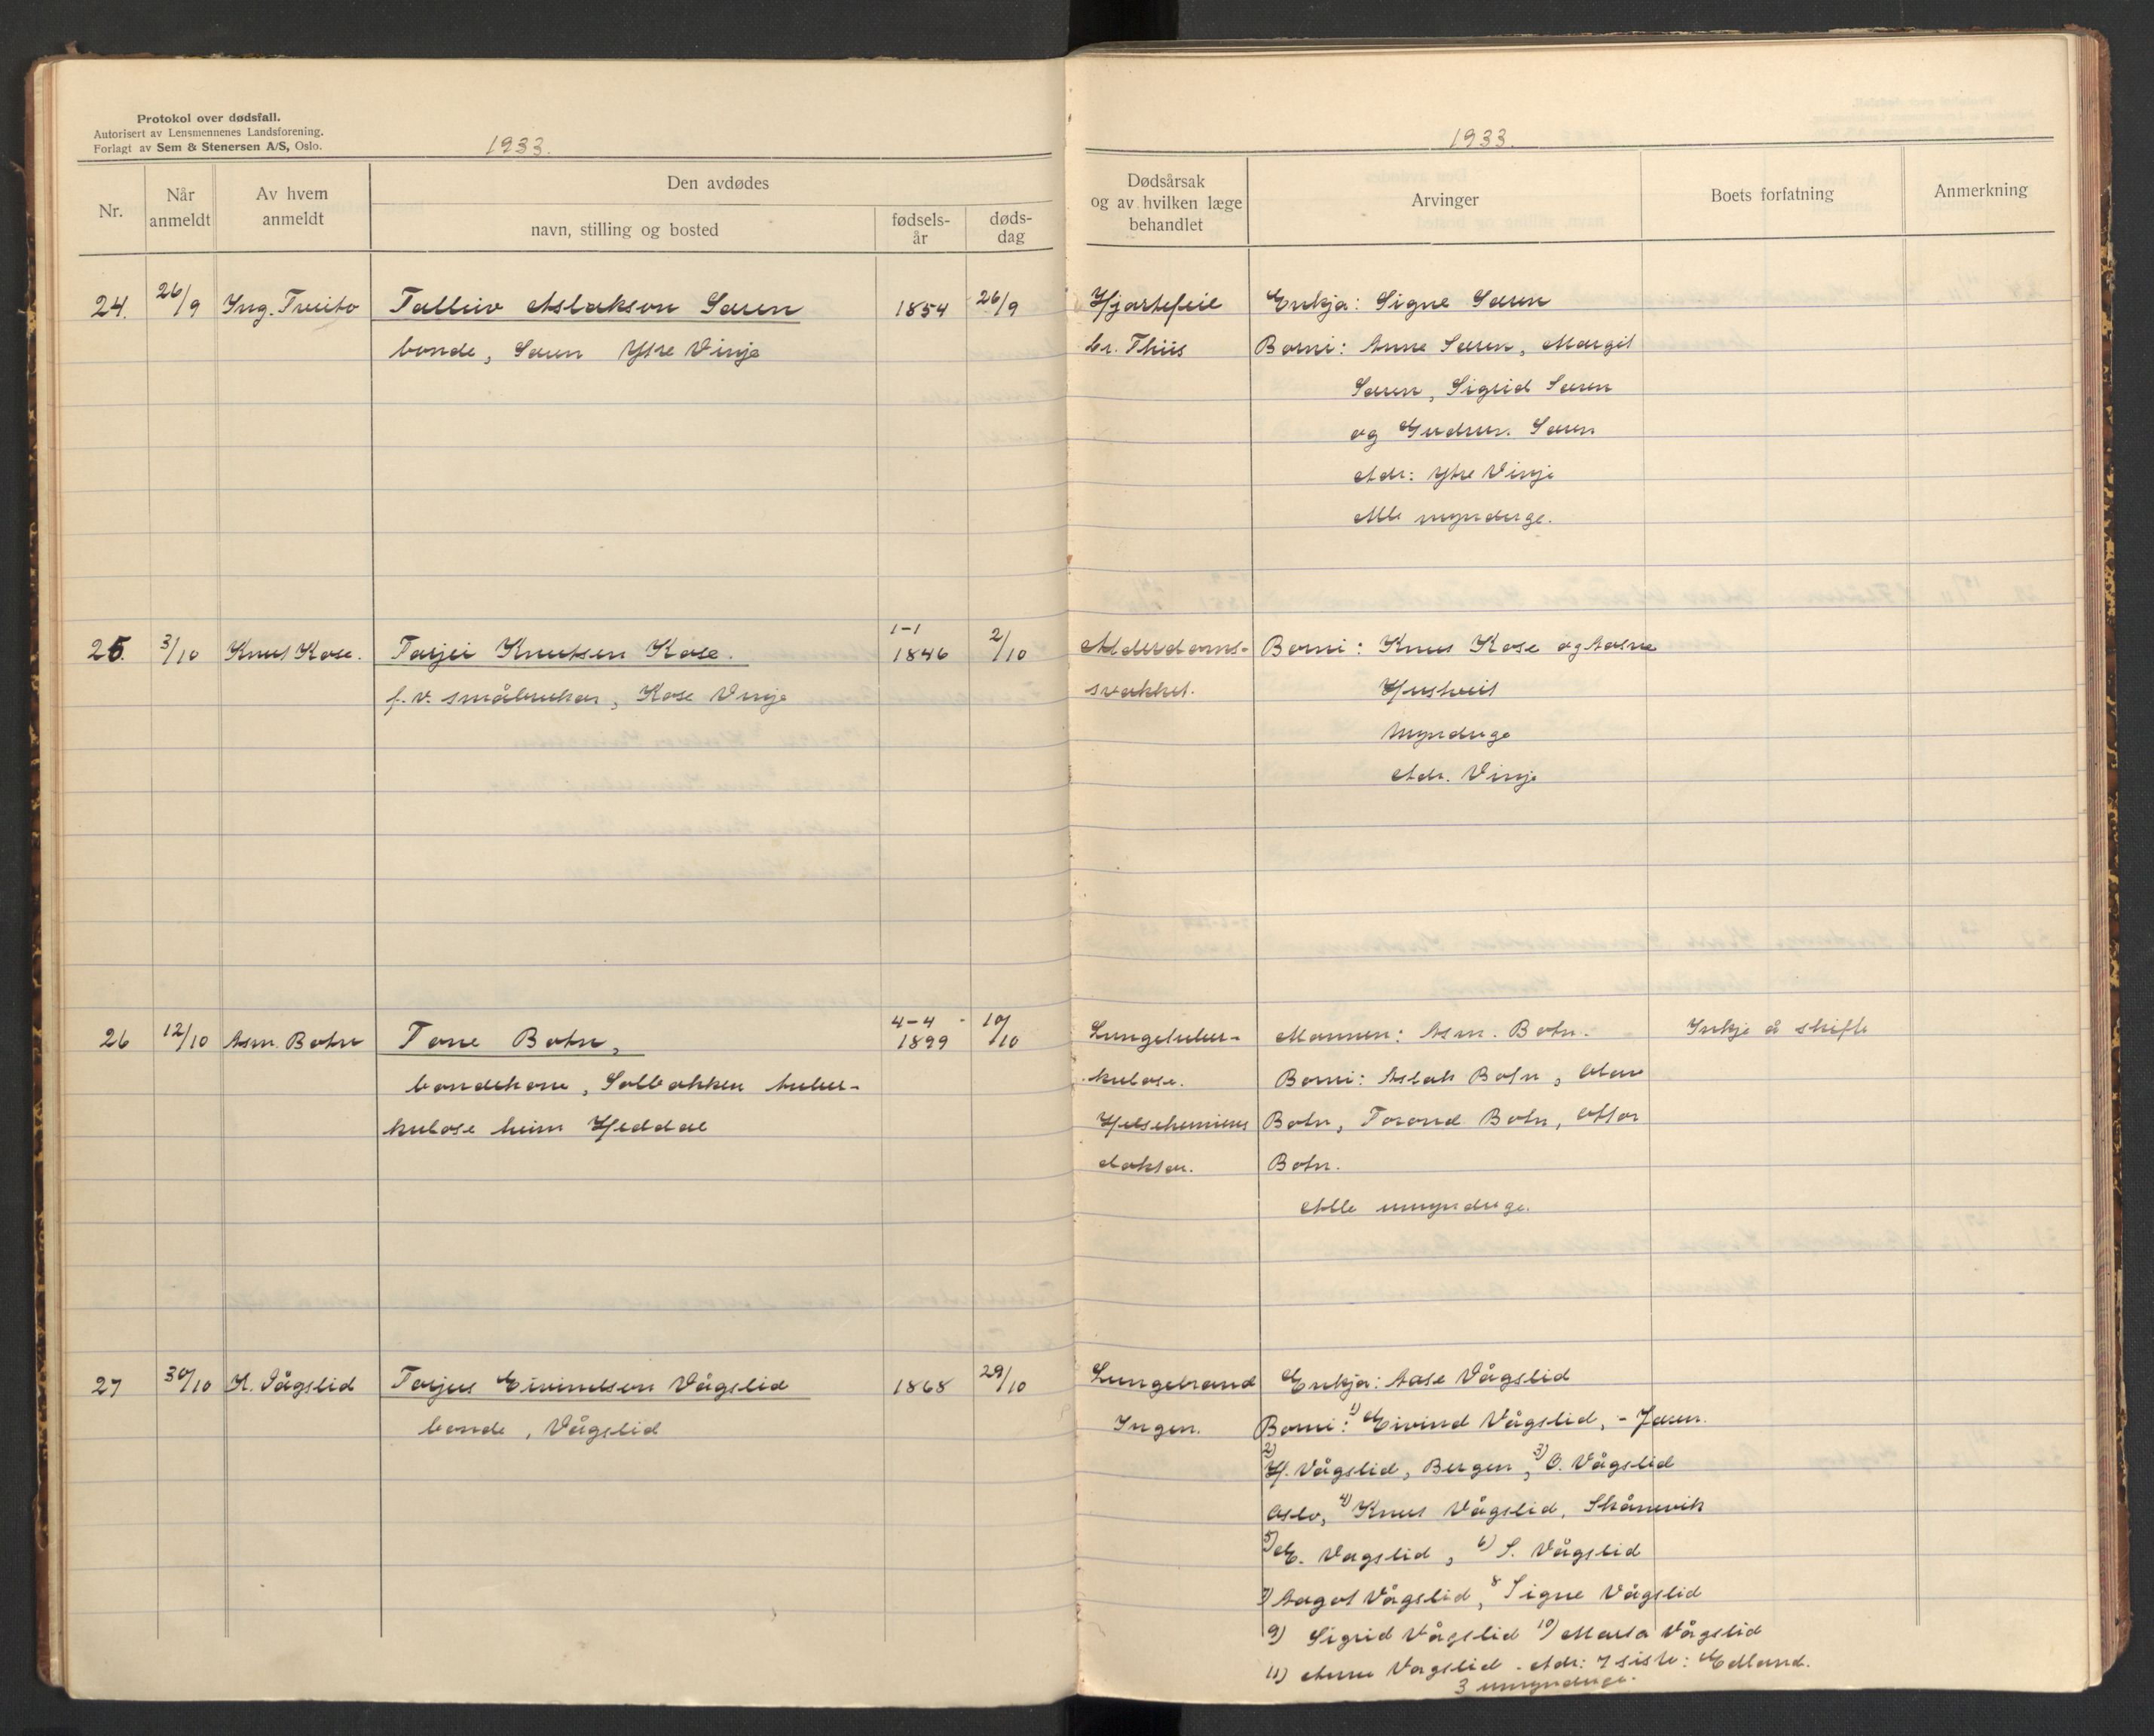 Protokol over dødsfall.
Autorisert av Lensmennenes Landsforening.
Forlagt av Sem & Stenersen A/S, Oslo.
1933.
Nr.
Når anmeldt
Av hvem anmeldt
Den avdødes
navn, stilling og bosted
fødsels-år
døds-dag
24. 26/9 Ing. Treito Talleiv Aslakson Særen 1854 26/9
bonde, Særen Ytre Vinje
25. 3/10 Knut Kose. Tarjei Knutsen Kose. 1-1 1846 2/10
f.v. småbruker, Kose Vinje
26 12/10 Asm. Botn Tone Botn, 4-4 1899 10/10
bondekone, Solbakken tuber-
kulose heim Heddal
27 30/10 K. Vågslid Tarjus Eivindsen Vågslid 1868 29/10
bonde, Vågslid
1933.
Dødsårsak
og av hvilken læge
behandlet
Arvinger
Boets forfatning
Anmerkning
Hjartefeil Enkja: Signe Særen
Dr. Thiis Borni: Anne Særen, Margit
Særen, Sigrid Særen
og Gudrun Særen
Adr: Ytre Vinje
Alle myndige.
Alderdoms- Borni: Knut Kose og Aasne
svakhet.
Myndige
Adr. Vinje
Lungetuber- Mannen: Asm. Botn. Inkje å skifte
kulose. Borni: Aslak Botn, Olav
Helseheimens Botn, Torond Botn, Ottar
doktor. Botn.
Alle umyndige.
Lungebrand Enkja: Aase Vågslid
Ingen. Borni: 1) Eivind Vågslid, - Jæren.
2) H. Vågslid, Bergen, 3) O. Vågslid
Oslo, 4) Knut Vågslid, Skånevik
5) E. Vågslid, 6) S. Vågslid
7) Aagot Vågslid, 8 Signe Vågslid
9) Sigrid Vågslid 10) Marta Vågslid
11) Anne Vågslid - Adr: 7 siste: Edland.
3 umyndige.